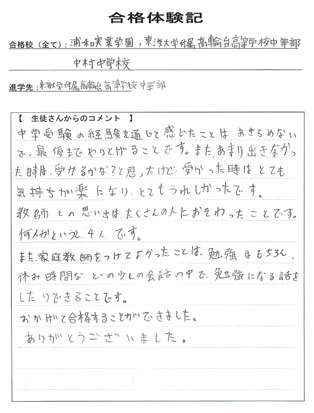 合格体験記
合格校（全て）：浦和実業学園，東海大学付属高輪台高等学校中等部
中村中学校
進学先：東海大学付属高輪台高等学校中等部
【 生徒さんからのコメント 】
中学受験の経験を通して感じたことは、あきらめない
で、最後までやりとげることです。また、あまり出きなかっ
た時は、受かるかな?と思ったけど、受かった時はとても
気持ちが楽になり、とてもうれしかったです。
教師との思い出は、たくさんの人におそわったことです。
何人かというと、4人です。
また、家庭教師をつけてよかったことは、勉強はもちろん、
休み時間などの少しの会話の中で、勉強になる話を
したりできることです。
おかげで合格することができました。
ありがとうございました。